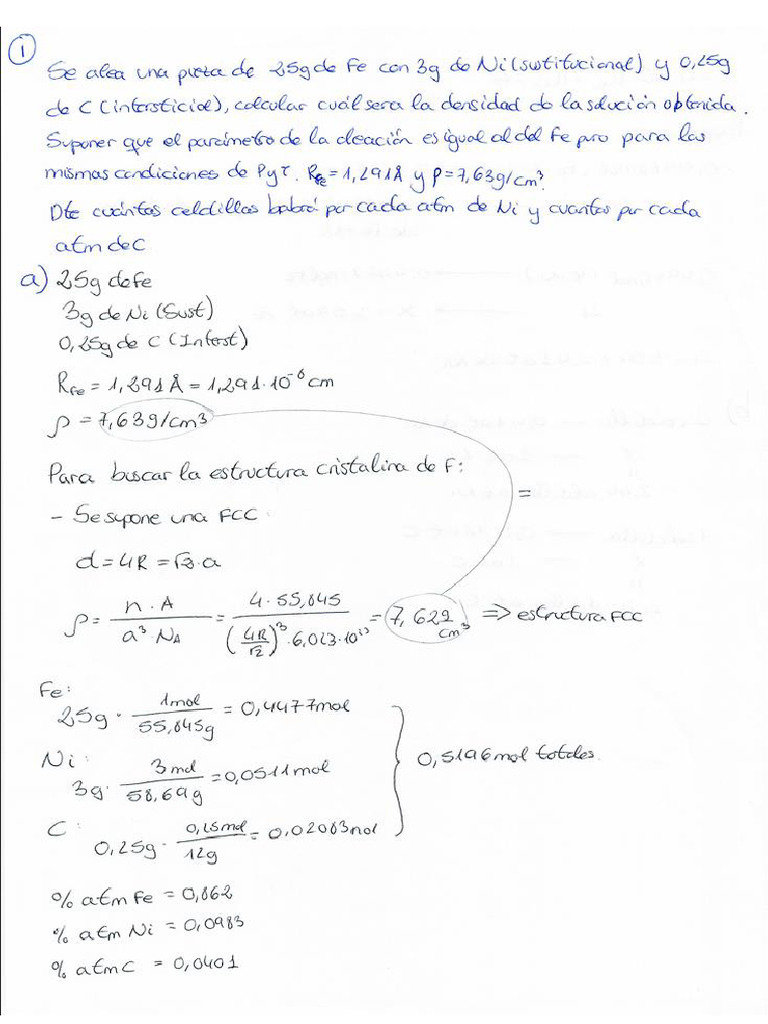 1
Se alea una pieza de 25g de Fe con 3g de Ni (sustitucional) y 0,25g
de C (intersticial), calcular cuál sera la densidad de la solución obtenida.
Suponer que el parámetro de la aleación es igual al del Fe puro para las
mismas condiciones de P y T. RFe = 1,291Å y ρ = 7,63g/cm³.
Dte cuántas celdillas habrá por cada atm de Ni y cuantos por cada
atm de C
a) 25g de Fe
3g de Ni (Sust)
0,25g de C (Interst)
RFe = 1,291 Å = 1,291·10⁻⁸ cm
ρ = 7,63g/cm³
Para buscar la estructura cristalina de F:
=
- Se supone una FCC:
d = 4R = √2·a
ρ = n·A / a³·NA = 4·55,845 / (4R/√2)³·6,023·10²³ = 7,629 g/cm³ ⇒ estructura FCC
Fe:
25g · 1mol / 55,845g = 0,4477mol
Ni:
3g · 3mol / 58,69g = 0,0511mol
0,5196mol totales.
C:
0,25g · 0,25mol / 12g = 0,02083mol
% atm Fe = 0,862
% atm Ni = 0,0983
% atm C = 0,0401